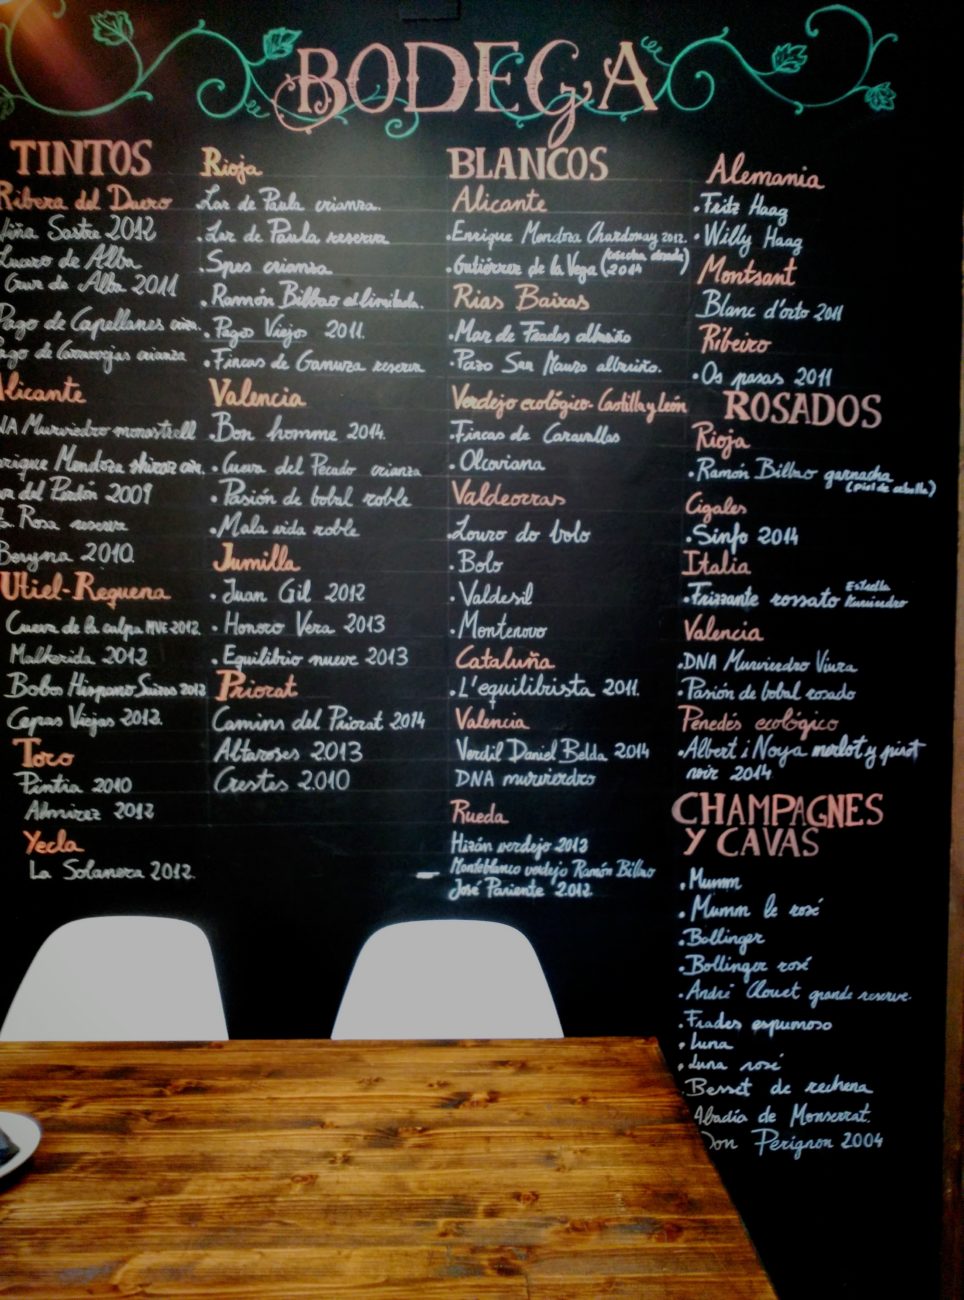 BODEGA
TINTOS
Ribera del Duero
Viña Sastre 2012
Lucero de Alba
Cruz de Alba 2011
Pago de Capellanes crian.
Pago de Carraovejas crianza
Alicante
DNA Murviedro monastrell
Enrique Mendoza shiraz crian.
del 2009
La Rosa reserva
Beryna 2010
Utiel-Requena
Cueva de la culpa MVC 2012
Malkerida 2012
Bobos Hispano Suizas 2012
Cepas Viejas 2012
Toro
Pintia 2010
Admirez 2012
Yecla
La Solanera 2012
Rioja
.Lar de Paula crianza.
.Lar de Paula reserva
.Spes crianza
.Ramón Bilbao ed.limitada.
.Pago Viejo 2011.
.Fincas de Ganuza reserva
Valencia
.Bon homme 2014.
.Cueva del Pecado crianza
.Pasión de bobal roble
.Mala vida roble
Jumilla
.Juan Gil 2012
.Honoro Vera 2013
.Equilibrio nueve 2013
Priorat
Camins del Priorat 2014
Altaroses 2013
Crestes 2010
BLANCOS
Alicante
.Enrique Mendoza Chardonnay 2012.
.Gutiérrez de la Vega (cosecha dorada) 2014
Rias Baixas
.Mar de Frades albariño
.Pazo San Mauro albariño.
Verdejo ecológico- Castilla y León
.Fincas de Caravallas
.Olcaviana
Valdeorras
.Louro do bolo
.Bolo
.Valdesil
.Montenovo
Cataluña
.L'equilibrista 2011.
Valencia
Verdil Daniel Belda 2014
DNA murviedro
Rueda
Hizán verdejo 2013
Monteblanco verdejo Ramón Bilbao
José Pariente 2012.
Alemania
.Fritz Haag
.Willy Haag
Montsant
Blanc d'orto 2011
Ribeiro
.Os pasas 2011
ROSADOS
Rioja
.Ramón Bilbao garnacha
(piel de cebolla)
Cigales
.Sinfo 2014
Italia
.Frizzante rossato Estrella Murviedro
Valencia
.DNA Murviedro Viura
.Pasión de bobal rosado
Penedés ecológico
.Albert i Noya merlot y pinot
noir 2014
CHAMPAGNES
Y CAVAS
.Mumm
.Mumm le rosé
.Bollinger
.Bollinger rosé
.André Clouet grande reserve.
.Frades espumoso
.Luna
.Luna rosé
Besset de rechena
Abadía de Monserrat.
Don Perignon 2004